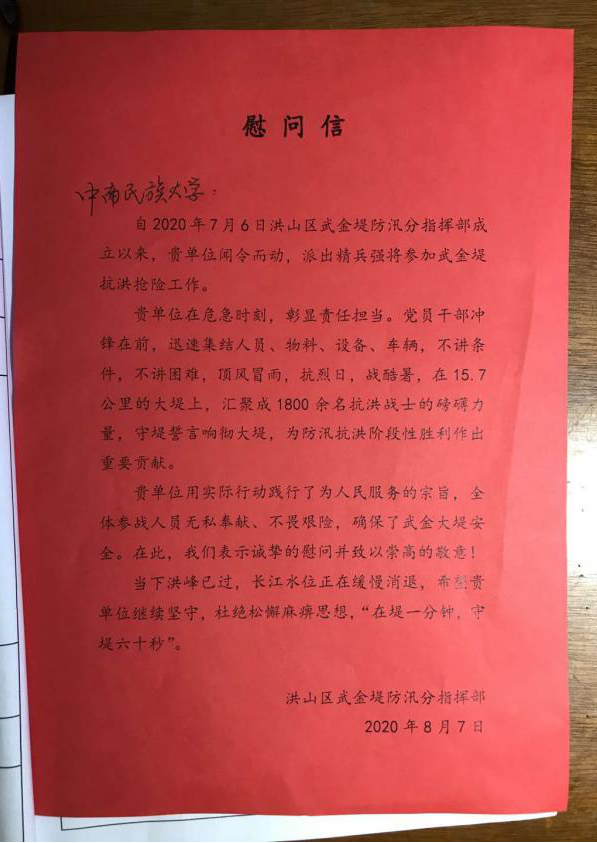 慰问信
中南民族大学：
自2020年7月6日洪山区武金堤防汛分指挥部成
立以来，贵单位闻令而动，派出精兵强将参加武金堤
抗洪抢险工作。
贵单位在危急时刻，彰显责任担当。党员干部冲
锋在前，迅速集结人员、物料、设备、车辆，不讲条
件，不讲困难，顶风冒雨，抗烈日，战酷暑，在15.7
公里的大堤上，汇聚成1800余名抗洪战士的磅礴力
量，守堤誓言响彻大堤，为防汛抗洪阶段性胜利作出
重要贡献。
贵单位用实际行动践行了为人民服务的宗旨，全
体参战人员无私奉献、不畏艰险，确保了武金大堤安
全。在此，我们表示诚挚的慰问并致以崇高的敬意！
当下洪峰已过，长江水位正在缓慢消退，希望贵
单位继续坚守，杜绝松懈麻痹思想，“在堤一分钟，守
堤六十秒”。
洪山区武金堤防汛分指挥部
2020年8月7日